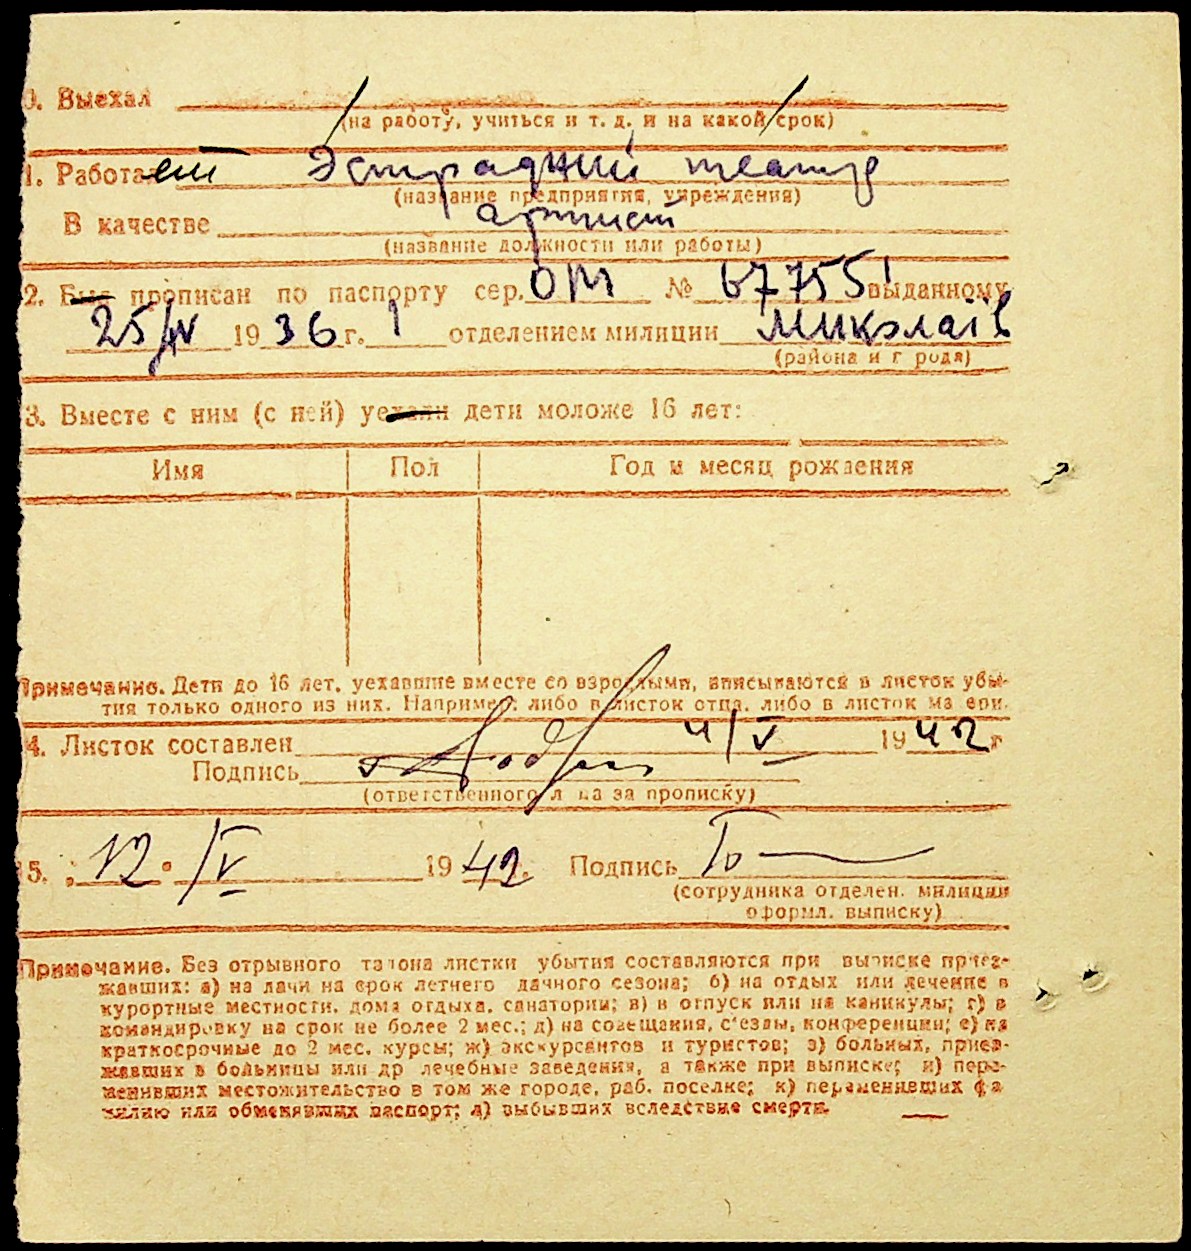 0. Выехал
(на работу, учиться и т. д. и на какой срок)
1. Работает Эстрадний театр
(название предприятия, учреждения)
В качестве артист
(название должности или работы)
2. Был прописан по паспорту сер. ОМ № 677551 выданному
25/IV 1936 г. 1 отделением милиции Миколаїв
(района и города)
3. Вместе с ним (с ней) уехали дети моложе 16 лет:
Имя Пол Год и месяц рождения
Примечание. Дети до 16 лет, уехавшие вместе со взрослыми, вписываются в листок убы-
тия только одного из них. Например: либо в листок отца, либо в листок матери.
4. Листок составлен 4/V 1942 г
Подпись
(ответственного лица за прописку)
15. 12. /V 1942. Подпись
(сотрудника отделен. милиции
оформл. выписку)
Примечание. Без отрывного талона листки убытия составляются при выписке приез-
жавших: а) на дачи на срок летнего дачного сезона; б) на отдых или лечение в
курортные местности, дома отдыха, санатории; в) в отпуск или на каникулы; г) в
командировку на срок не более 2 мес.; д) на совещания, с'езды, конференции; е) на
краткосрочные до 2 мес. курсы; ж) экскурсантов и туристов; з) больных, приез-
жавших в больницы или др лечебные заведения, а также при выписке; и) пере-
менивших местожительство в том же городе, раб. поселке; к) переменивших фа
милию или обменявших паспорт; л) выбывших вследствие смерти.